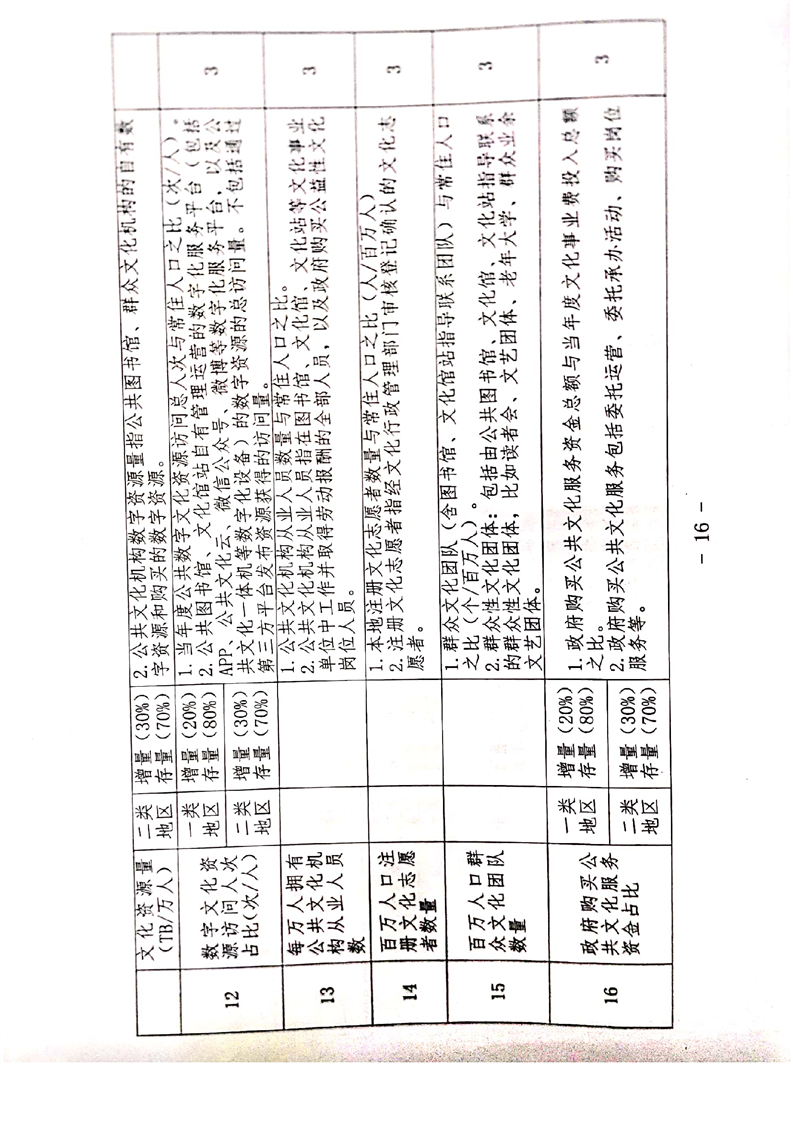 文化资源量
(TB/万人)
二类
地区
增量（30%）
存量（70%）
2. 公共文化机构数字资源量指公共图书馆、群众文化机构的自有数
字资源和购买的数字资源。
12
数字文化资
源访问人次
占比(次/人)
一类
地区
增量（20%）
存量（80%）
二类
地区
增量（30%）
存量（70%）
1. 当年度公共数字文化资源访问总人次与常住人口之比（次/人）。
2. 公共图书馆、文化馆站自有管理运营的数字化服务平台（包括
APP、公共文化云、微信公众号、微博等数字化服务平台，以及公
共文化一体机等数字化设备）的数字资源的总访问量。不包括通过
第三方平台发布资源获得的访问量。
3
13
每万人拥有
公共文化机
构从业人员
数
1. 公共文化机构从业人员数量与常住人口之比。
2. 公共文化机构从业人员指在图书馆、文化馆、文化站等文化事业
单位中工作并取得劳动报酬的全部人员，以及政府购买公益性文化
岗位人员。
3
14
百万人口注
册文化志愿
者数量
1. 本地注册文化志愿者数量与常住人口之比（人/百万人）
2. 注册文化志愿者指经文化行政管理部门审核登记确认的文化志
愿者。
3
15
百万人口群
众文化团队
数量
1. 群众文化团队（含图书馆、文化馆站指导联系团队）与常住人口
之比（个/百万人）。
2. 群众性文化团体：包括由公共图书馆、文化馆、文化站指导联系
的群众性文化团体，比如读者会、文艺团体、老年大学、群众业余
文艺团体。
3
16
政府购买公
共文化服务
资金占比
一类
地区
增量（20%）
存量（80%）
二类
地区
增量（30%）
存量（70%）
1. 政府购买公共文化服务资金总额与当年度文化事业费投入总额
之比。
2. 政府购买公共文化服务包括委托运营、委托承办活动、购买岗位
服务等。
3
- 16 -